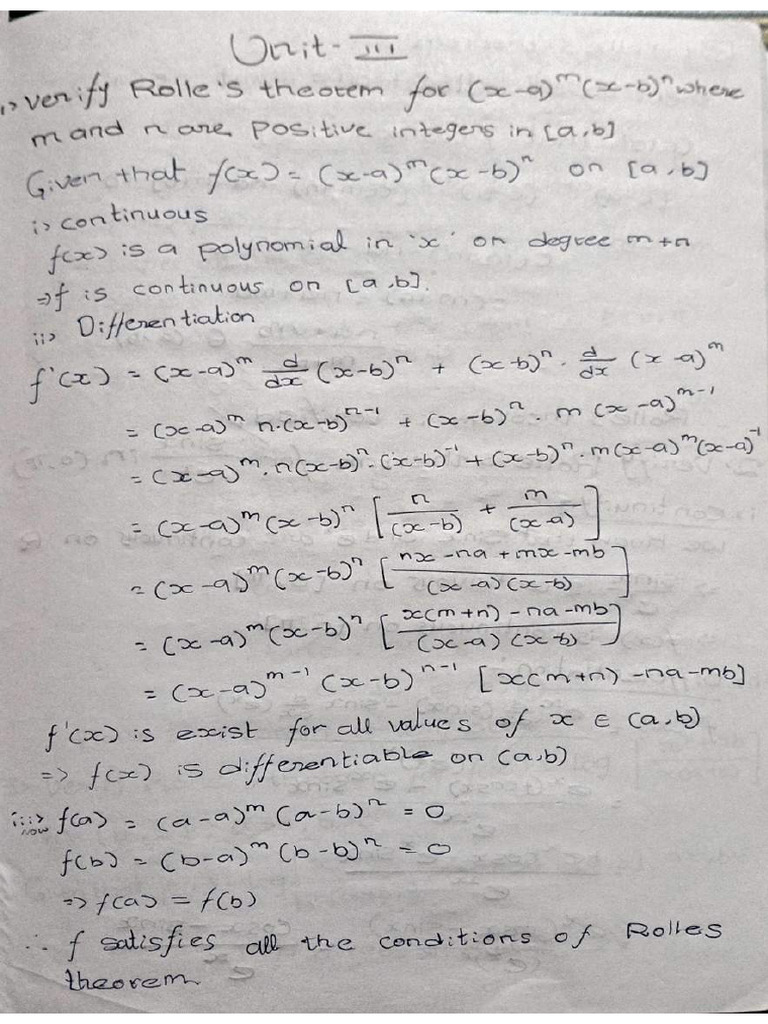 Unit-III
1> verify Rolle's theorem for (x-a)^m(x-b)^n where
m and n are positive integers in [a,b]
Given that f(x) = (x-a)^m(x-b)^n on [a,b]
i> continuous
f(x) is a polynomial in 'x' on degree m+n
⇒f is continuous on [a,b].
ii> Differentiation
f'(x) = (x-a)^m d/dx (x-b)^n + (x-b)^n . d/dx (x-a)^m
= (x-a)^m n.(x-b)^{n-1} + (x-b)^n . m (x-a)^{m-1}
= (x-a)^m . n(x-b)^n . (x-b)^{-1} + (x-b)^n . m(x-a)^m (x-a)^{-1}
= (x-a)^m (x-b)^n [n/(x-b) + m/(x-a)]
= (x-a)^m (x-b)^n [nx-na+mx-mb/(x-a)(x-b)]
= (x-a)^m (x-b)^n [x(m+n)-na-mb/(x-a)(x-b)]
= (x-a)^{m-1} (x-b)^{n-1} [x(m+n)-na-mb]
f'(x) is exist for all values of x ∈ (a,b)
=> f(x) is differentiable on (a,b)
iii> now f(a) = (a-a)^m (a-b)^n = 0
f(b) = (b-a)^m (b-b)^n = 0
=> f(a) = f(b)
∴ f satisfies all the conditions of Rolles
theorem.